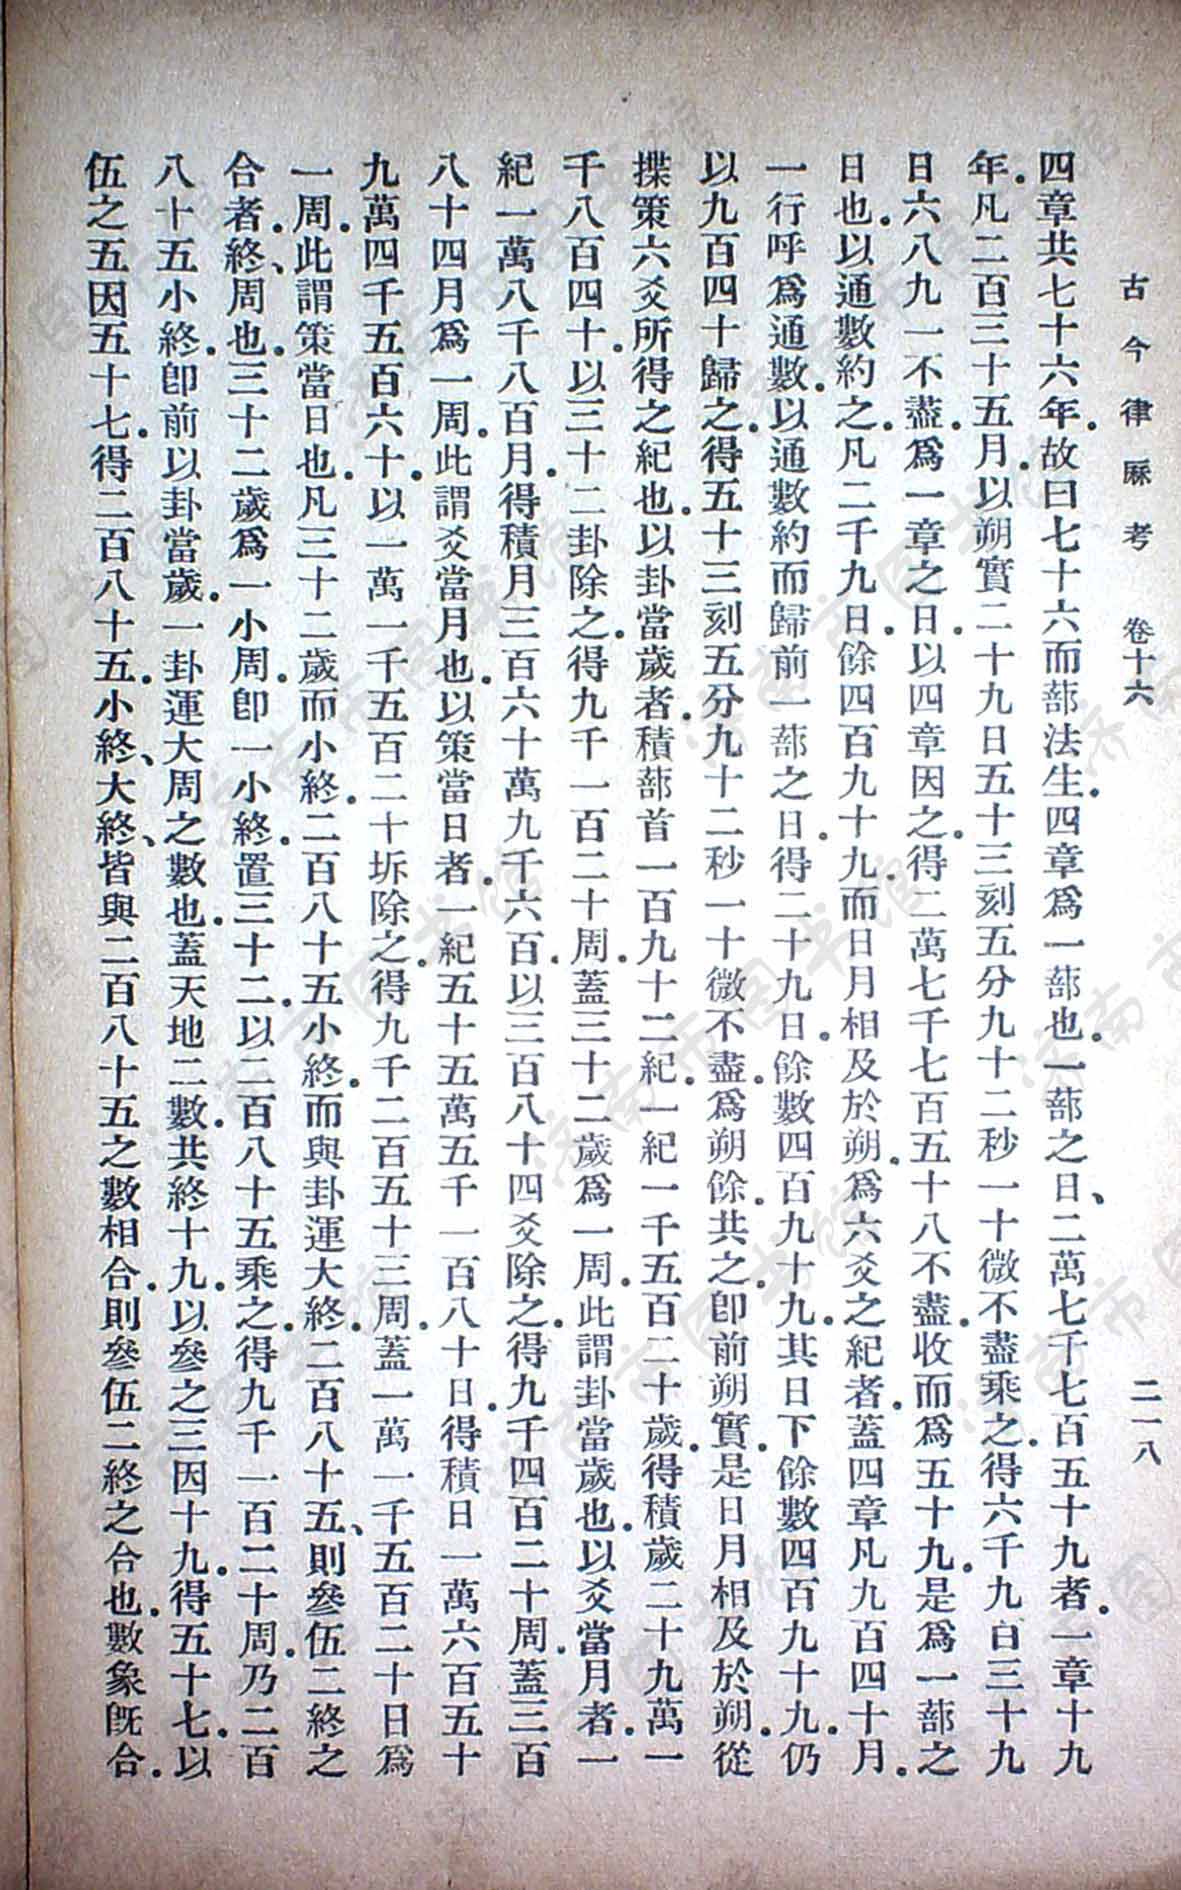 古今律厤考　卷十六　二一八
四章共七十六年。故曰七十六而蔀法生。四章爲一蔀也。一蔀之日、二萬七千七百五十九者。一章十九
年。凡二百三十五月。以朔實二十九日五十三刻五分九十二秒一十微不盡乘之。得六千九百三十九
日六八九一不盡。爲一章之日。以四章因之。得二萬七千七百五十八不盡。收而爲五十九。是爲一蔀之
日也。以通數約之。凡二千九日。餘四百九十九。而日月相及於朔。爲六爻之紀者。蓋四章凡九百四十月。
一行呼爲通數。以通數約而歸前一蔀之日。得二十九日。餘數四百九十九。其日下餘數四百九十九。仍
以九百四十歸之。得五十三刻五分九十二秒一十微不盡。爲朔餘。共之。卽前朔實。是日月相及於朔。從
揲策六爻所得之紀也。以卦當歲者。積蔀首一百九十二紀。一紀一千五百二十歲。得積歲二十九萬一
千八百四十。以三十二卦除之。得九千一百二十周。蓋三十二歲爲一周。此謂卦當歲也。以爻當月者。一
紀一萬八千八百月。得積月三百六十萬九千六百。以三百八十四爻除之。得九千四百二十周。蓋三百
八十四月爲一周。此謂爻當月也。以策當日者。一紀五十五萬五千一百八十日。得積日一萬六百五十
九萬四千五百六十。以一萬一千五百二十坼除之。得九千二百五十三周。蓋一萬一千五百二十日爲
一周。此謂策當日也。凡三十二歲而小終。二百八十五小終。而與卦運大終。二百八十五、則參伍二終之
合者。終、周也。三十二歲爲一小周。卽一小終。置三十二。以二百八十五乘之。得九千一百二十周。乃二百
八十五小終。卽前以卦當歲。一卦運大周之數也。蓋天地二數。共終十九。以參之三因十九。得五十七。以
伍之五因五十七。得二百八十五。小終、大終、皆與二百八十五之數相合。則參伍二終之合也。數象旣合。